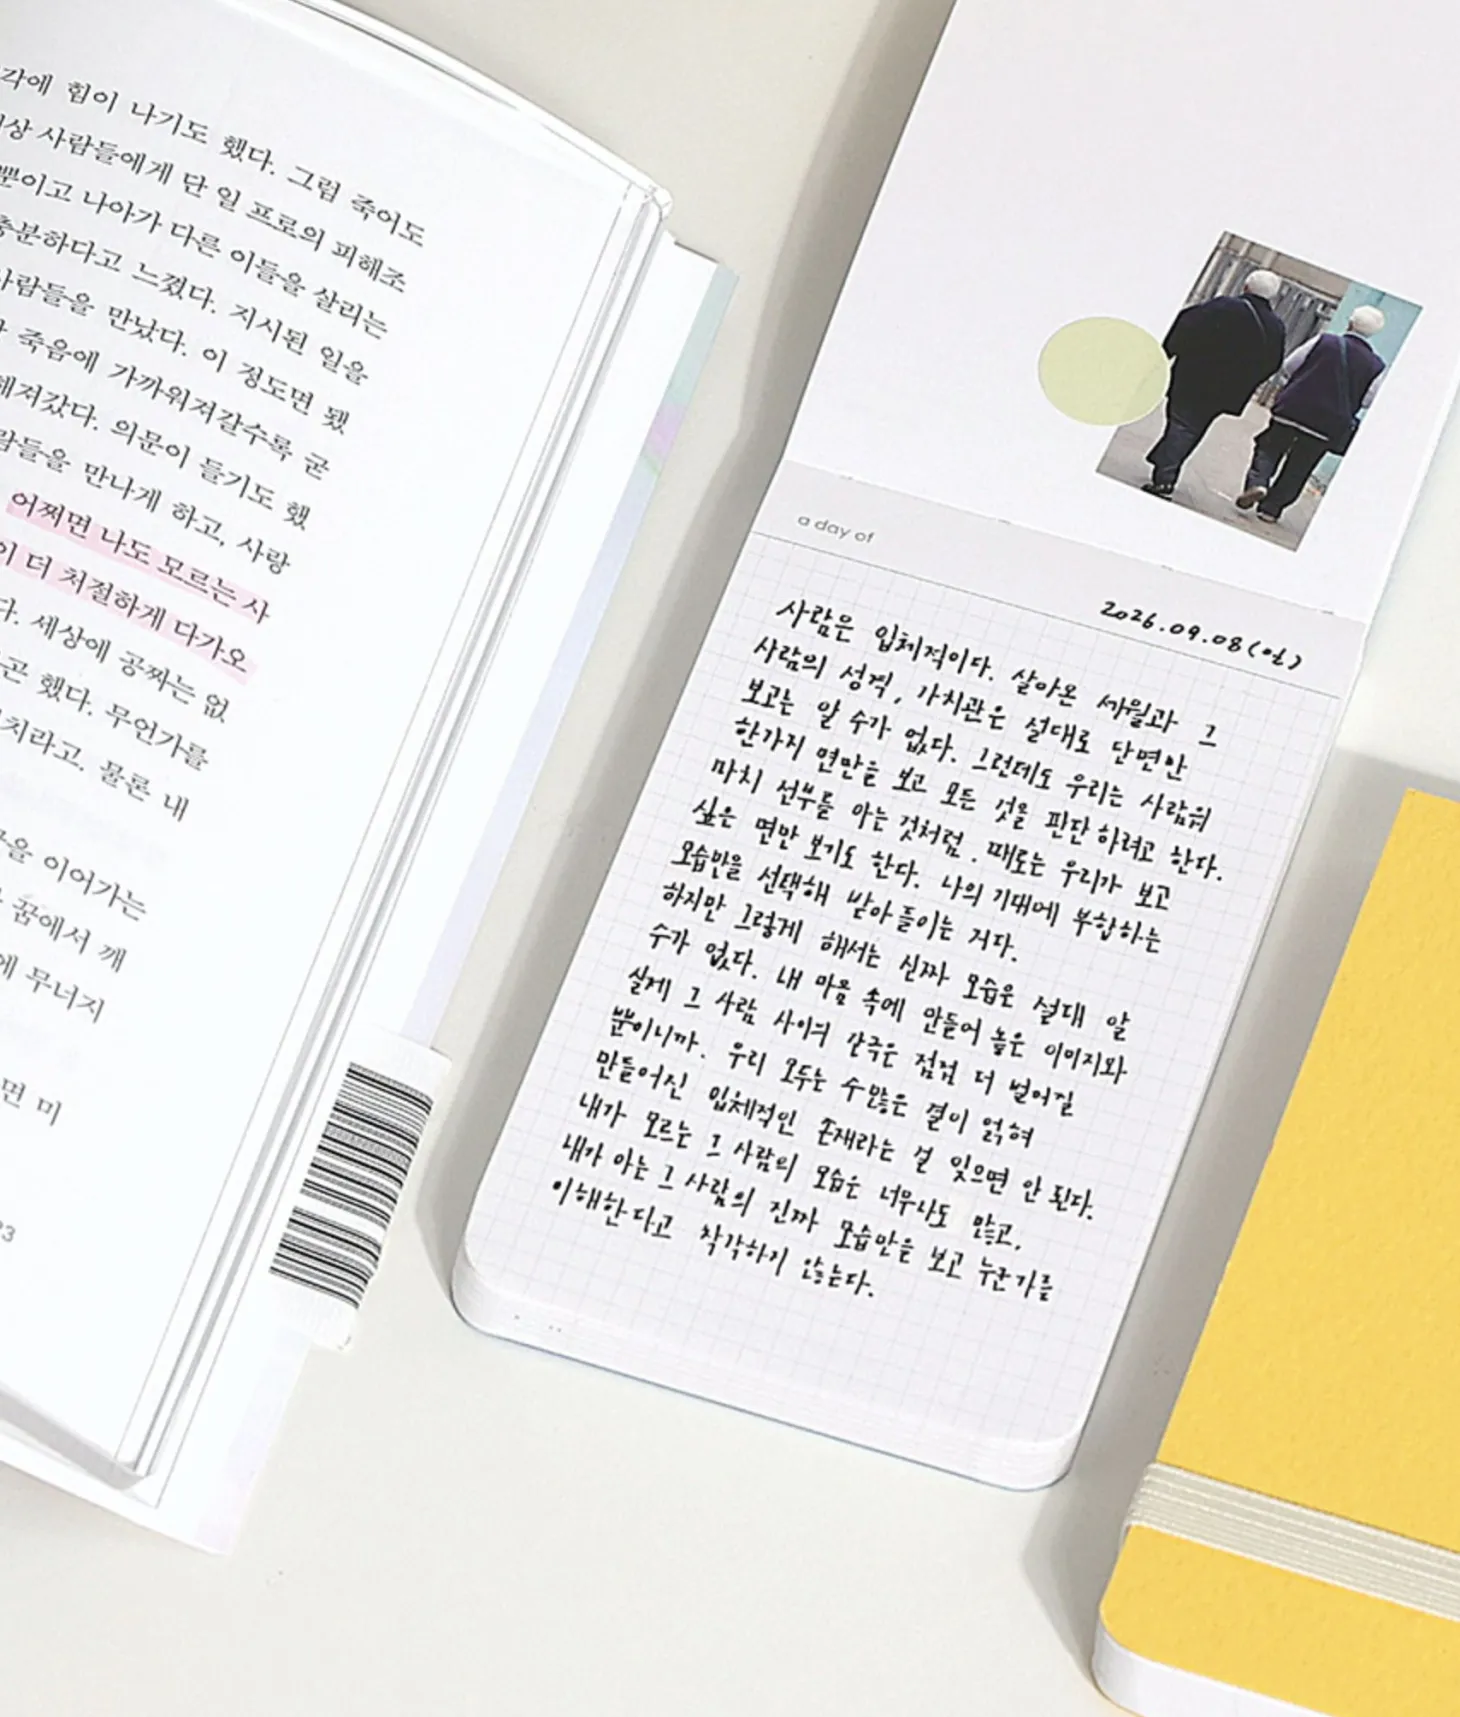 각에 힘이 나기도 했다. 그럼 죽어도
상 사람들에게 단 일 프로의 피해조
뿐이고 나아가 다른 이들을 살리는
충분하다고 느꼈다. 지시된 일을
사람들을 만났다. 이 정도면 됐
죽음에 가까워져갈수록 굳
해져갔다. 의문이 들기도 했
람들을 만나게 하고, 사랑
어쩌면 나도 모르는 사
이 더 처절하게 다가오
다. 세상에 공짜는 없
곤 했다. 무언가를
치라고. 물론 내
을 이어가는
꿈에서 깨
에 무너지
면 미
a day of
2026.09.08(언)
사람은 입체적이다. 살아온 세월과 그
사람의 성격, 가치관은 절대로 단면만
보고는 알 수가 없다. 그런데도 우리는 사람의
한가지 면만을 보고 모든 것을 판단하려고 한다.
마치 전부를 아는 것처럼. 때로는 우리가 보고
싶은 면만 보기도 한다. 나의 기대에 부합하는
모습만을 선택해 받아들이는 거다.
하지만 그렇게 해서는 진짜 모습은 절대 알
수가 없다. 내 마음 속에 만들어 놓은 이미지와
실제 그 사람 사이의 간극은 점점 더 벌어질
뿐이니까. 우리 모두는 수많은 결이 얽혀
만들어진 입체적인 존재라는 걸 잊으면 안 된다.
내가 모르는 그 사람의 모습은 너무나도 많고,
내가 아는 그 사람의 진짜 모습만을 보고 누군가를
이해한다고 착각하지 않는다.